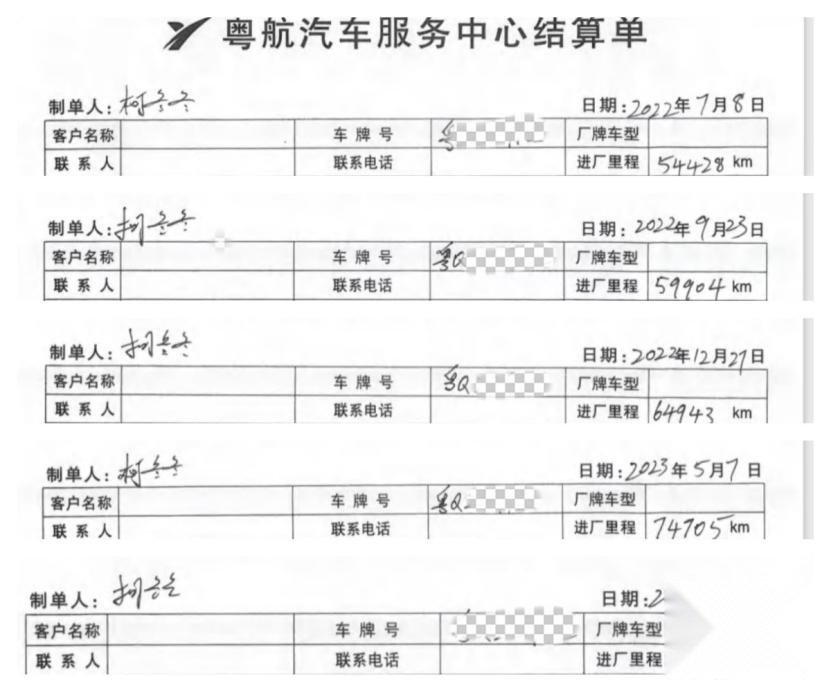 粤航汽车服务中心结算单
制单人：柯冬冬 日期：2022年7月8日
客户名称 车牌号 粤 厂牌车型
联系人 联系电话 进厂里程 54428 km
制单人：柯冬冬 日期：2022年9月23日
客户名称 车牌号 粤Q 厂牌车型
联系人 联系电话 进厂里程 59904 km
制单人：柯冬冬 日期：2022年12月27日
客户名称 车牌号 粤Q 厂牌车型
联系人 联系电话 进厂里程 64943 km
制单人：柯冬冬 日期：2023年5月7日
客户名称 车牌号 粤Q 厂牌车型
联系人 联系电话 进厂里程 74705 km
制单人：柯冬冬 日期：2
客户名称 车牌号 厂牌车型
联系人 联系电话 进厂里程